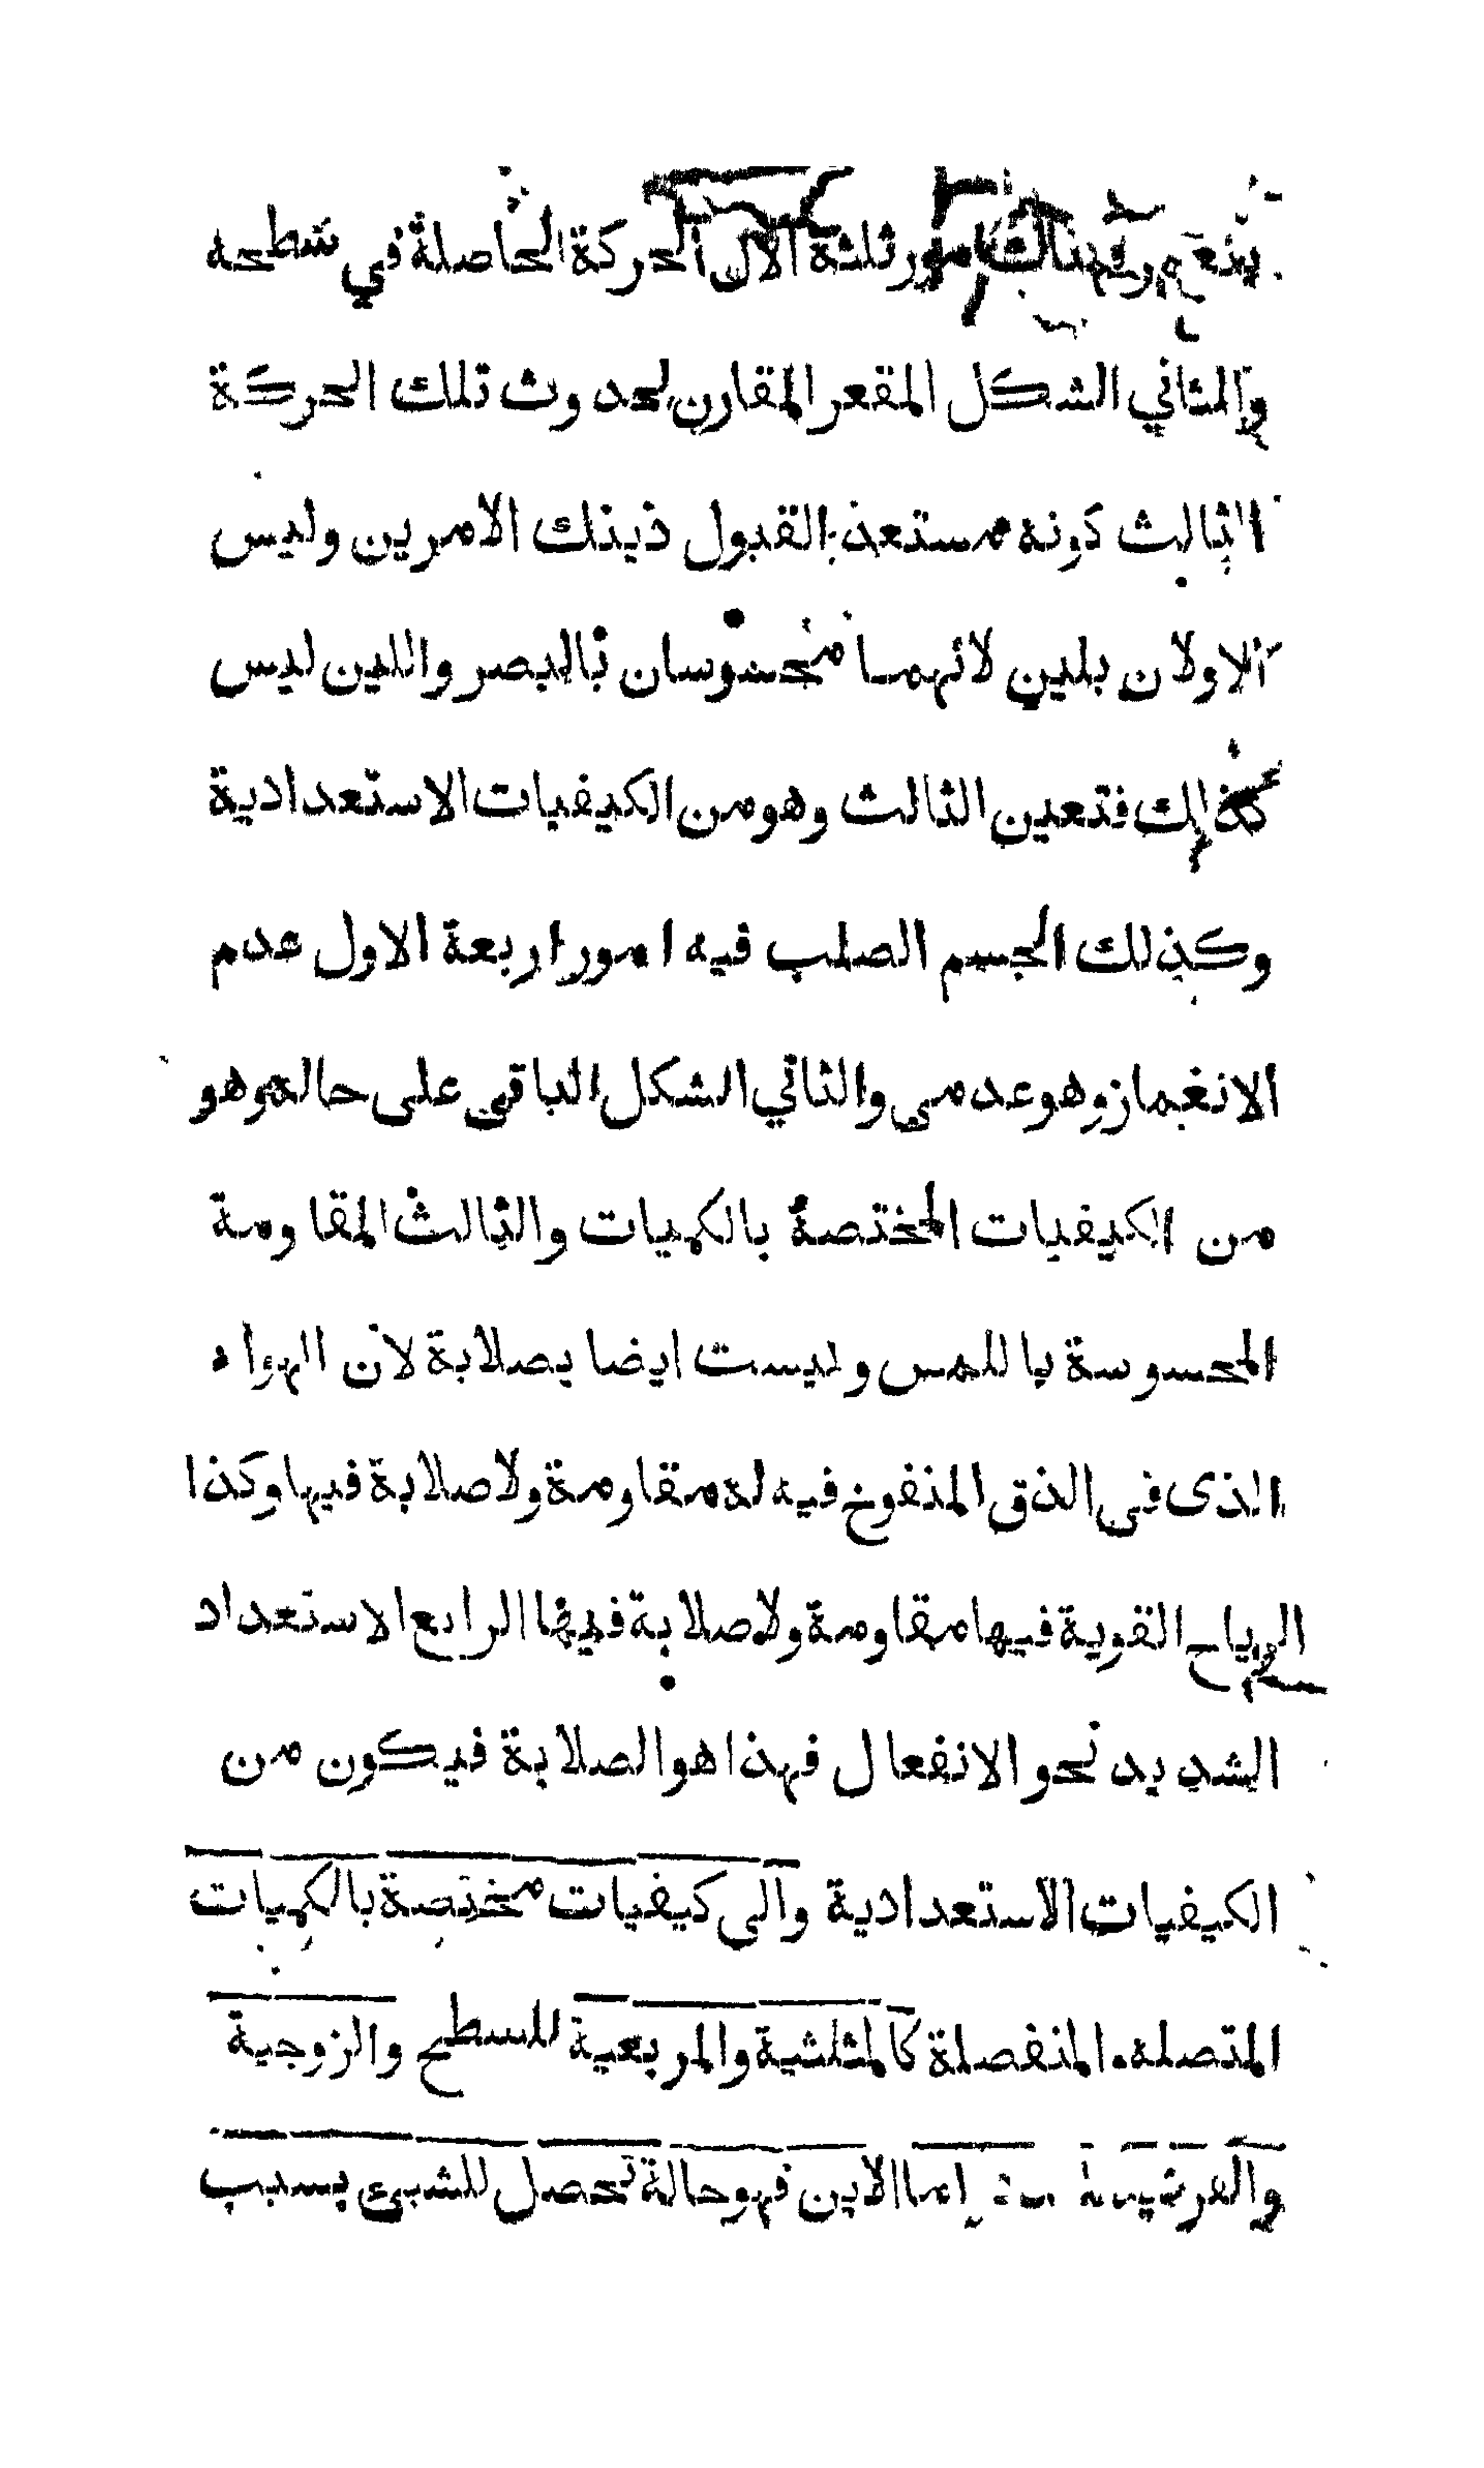 ينغمر وهناك امور ثلثة الاول الحركة الحاصلة في سطحه
والثاني الشكل المقعر المقارن لحدوث تلك الحركة
الثالث كونه مستعدا لقبول ذينك الامرين وليس
الاولان بلين لانهما محسوسان بالبصر واللين ليس
كذلك فتعين الثالث وهو من الكيفيات الاستعدادية
وكذلك الجسم الصلب فيه امور اربعة الاول عدم
الانغماز وهو عدمي والثاني الشكل الباقي على حاله وهو
من الكيفيات المختصة بالكميات والثالث المقاومة
المحسوسة باللمس وليست ايضا بصلابة لان الهواء
الذى فى الزق المنفوخ فيه له مقاومة ولا صلابة فيها وكذا
الرياح القوية فيها مقاومة ولا صلابة فيها الرابع الاستعداد
الشديد نحو الانفعال فهذا هو الصلابة فيكون من
الكيفيات الاستعدادية والى كيفيات مختصة بالكميات
المتصلة والمنفصلة كالمثلثية والمربعية للسطح والزوجية
والفردية اما الاين فهو حالة تحصل للشيئ بسبب